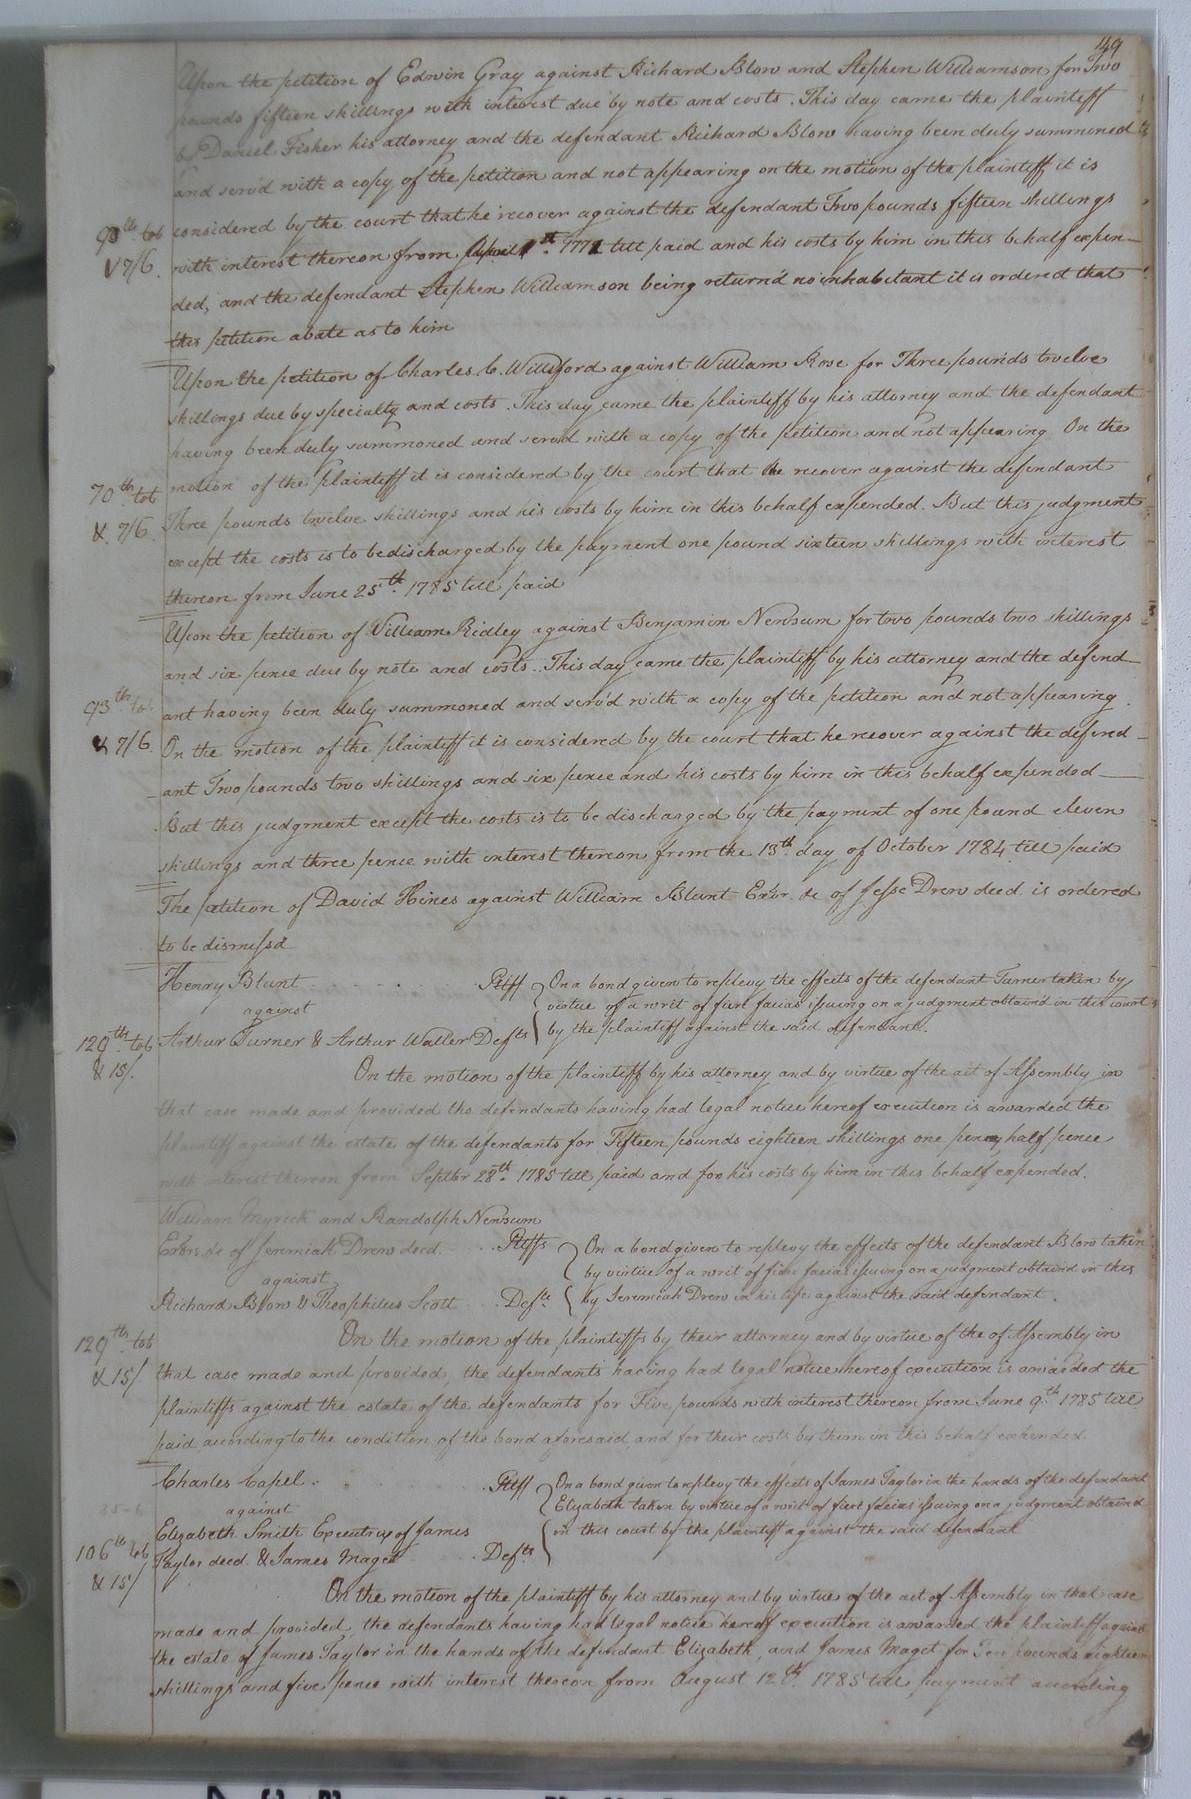 149
Upon the petition of Edwin Gray against Richard Blow and Stephen Williamson for Two
pounds fifteen shillings with interest due by note and costs. This day came the plaintiff
by Daniel Fisher his attorney and the defendant Richard Blow having been duly summoned
and serv'd with a copy of the petition and not appearing on the motion of the plaintiff it is
considered by the court that he recover against the defendant Two pounds fifteen shillings
with interest thereon from April 1st. 1771 till paid and his costs by him in this behalf expen-
ded, and the defendant Stephen Williamson being return'd no inhabitant it is ordered that
this petition abate as to him
93th tob
& 7/6.
Upon the petition of Charles C. Williford against William Rose for Three pounds twelve
shillings due by specialty and costs. This day came the plaintiff by his attorney and the defendant
having been duly summoned and serv'd with a copy of the petition and not appearing On the
motion of the plaintiff it is considered by the court that he recover against the defendant
Three pounds twelve shillings and his costs by him in this behalf expended. But this judgment
except the costs is to be discharged by the payment one pound sixteen shillings with interest
thereon from June 25th. 1785 till paid
70th tob
& 7/6.
Upon the petition of William Ridley against Benjamin Newsum for two pounds two shillings
and six pence due by note and costs. This day came the plaintiff by his attorney and the defend-
ant having been duly summoned and serv'd with a copy of the petition and not appearing.
On the motion of the plaintiff it is considered by the court that he recover against the defend-
ant Two pounds two shillings and six pence and his costs by him in this behalf expended
But this judgment except the costs is to be discharged by the payment of one pound eleven
shillings and three pence with interest thereon from the 13th. day of October 1784 till paid
93th. tob
& 7/6.
The petition of David Hines against William Blunt Exor. &c of Jesse Drew deced. is ordered
to be dismissd
Henry Blunt Pltff
against
Arthur Turner & Arthur Waller Defts
On a bond given to replevy the effects of the defendant Turner taken by
virtue of a writ of fieri facias issuing on a judgment obtained in this court
by the plaintiff against the said defendant.
129th. tob
& 15/.
On the motion of the plaintiff by his attorney and by virtue of the act of Assembly in
that case made and provided the defendants having had legal notice hereof execution is awarded the
plaintiff against the estate of the defendants for Fifteen pounds eighteen shillings one penny half pence
with interest thereon from Septbr 28th. 1785 till paid and for his costs by him in this behalf expended.
William Myrick and Randolph Newsum
Exors. &c of Jeremiah Drew deced. Pltffs
against
Richard Blow & Theophilus Scott Defts.
On a bond given to replevy the effects of the defendant Blow taken
by virtue of a writ of fieri facias issuing on a judgment obtaind in this
by Jeremiah Drew in his life against the said defendant.
129th. tob
& 15/
On the motion of the plaintiffs by their attorney and by virtue of the of Assembly in
that case made and provided, the defendants having had legal notice hereof execution is awarded the
plaintiffs against the estate of the defendants for Five pounds with interest thereon from June 9th. 1785 till
paid according to the condition of the bond aforesaid, and for their costs by them in this behalf expended
Charles Capel Pltff
against
Elizabeth Smith Executrix of James
Taylor deced. & James Maget Defts.
On a bond given to replevy the effects of James Taylor in the hands of the defendant
Elizabeth taken by virtue of a writ of fieri facias issuing on a judgment obtaind
in this court by the plaintiff against the said defendant
106th tob
& 15/
On the motion of the plaintiff by his attorney and by virtue of the act of Assembly in that case
made and provided, the defendants having had legal notice hereof execution is awarded the plaintiff against
the estate of James Taylor in the hands of the defendant Elizabeth, and James Maget for Ten pounds eighteen
shillings and five pence with interest thereon from August 12th. 1785 till payment according